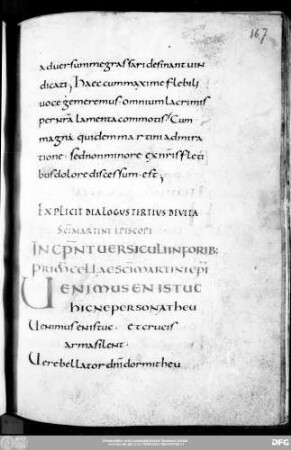 167
aduersummegrassari desinant uin
dicati, Haec cummaxime flebili
uoce gemeremus. omnium lacrimis
per nr̄a lamenta commotis. Cum
magna quidem martini admira
tione. sed non minore ex nr̄is fleti
bus dolore discessum est,
EXPLICIT DIALOGUS TERTIUS DE UITA
SC̄I MARTINI EPISCOPI
INCIP̄NT UERSICULI IN FORIB:
PRIM̄ CELLAE SC̄I MARTINI EP̄I
UENIMUS EN ISTUC
hic ne personat heu
Uenimus en istuc. et crucis
arma silent.
Uere bellator dn̄i dormit heu
DFG